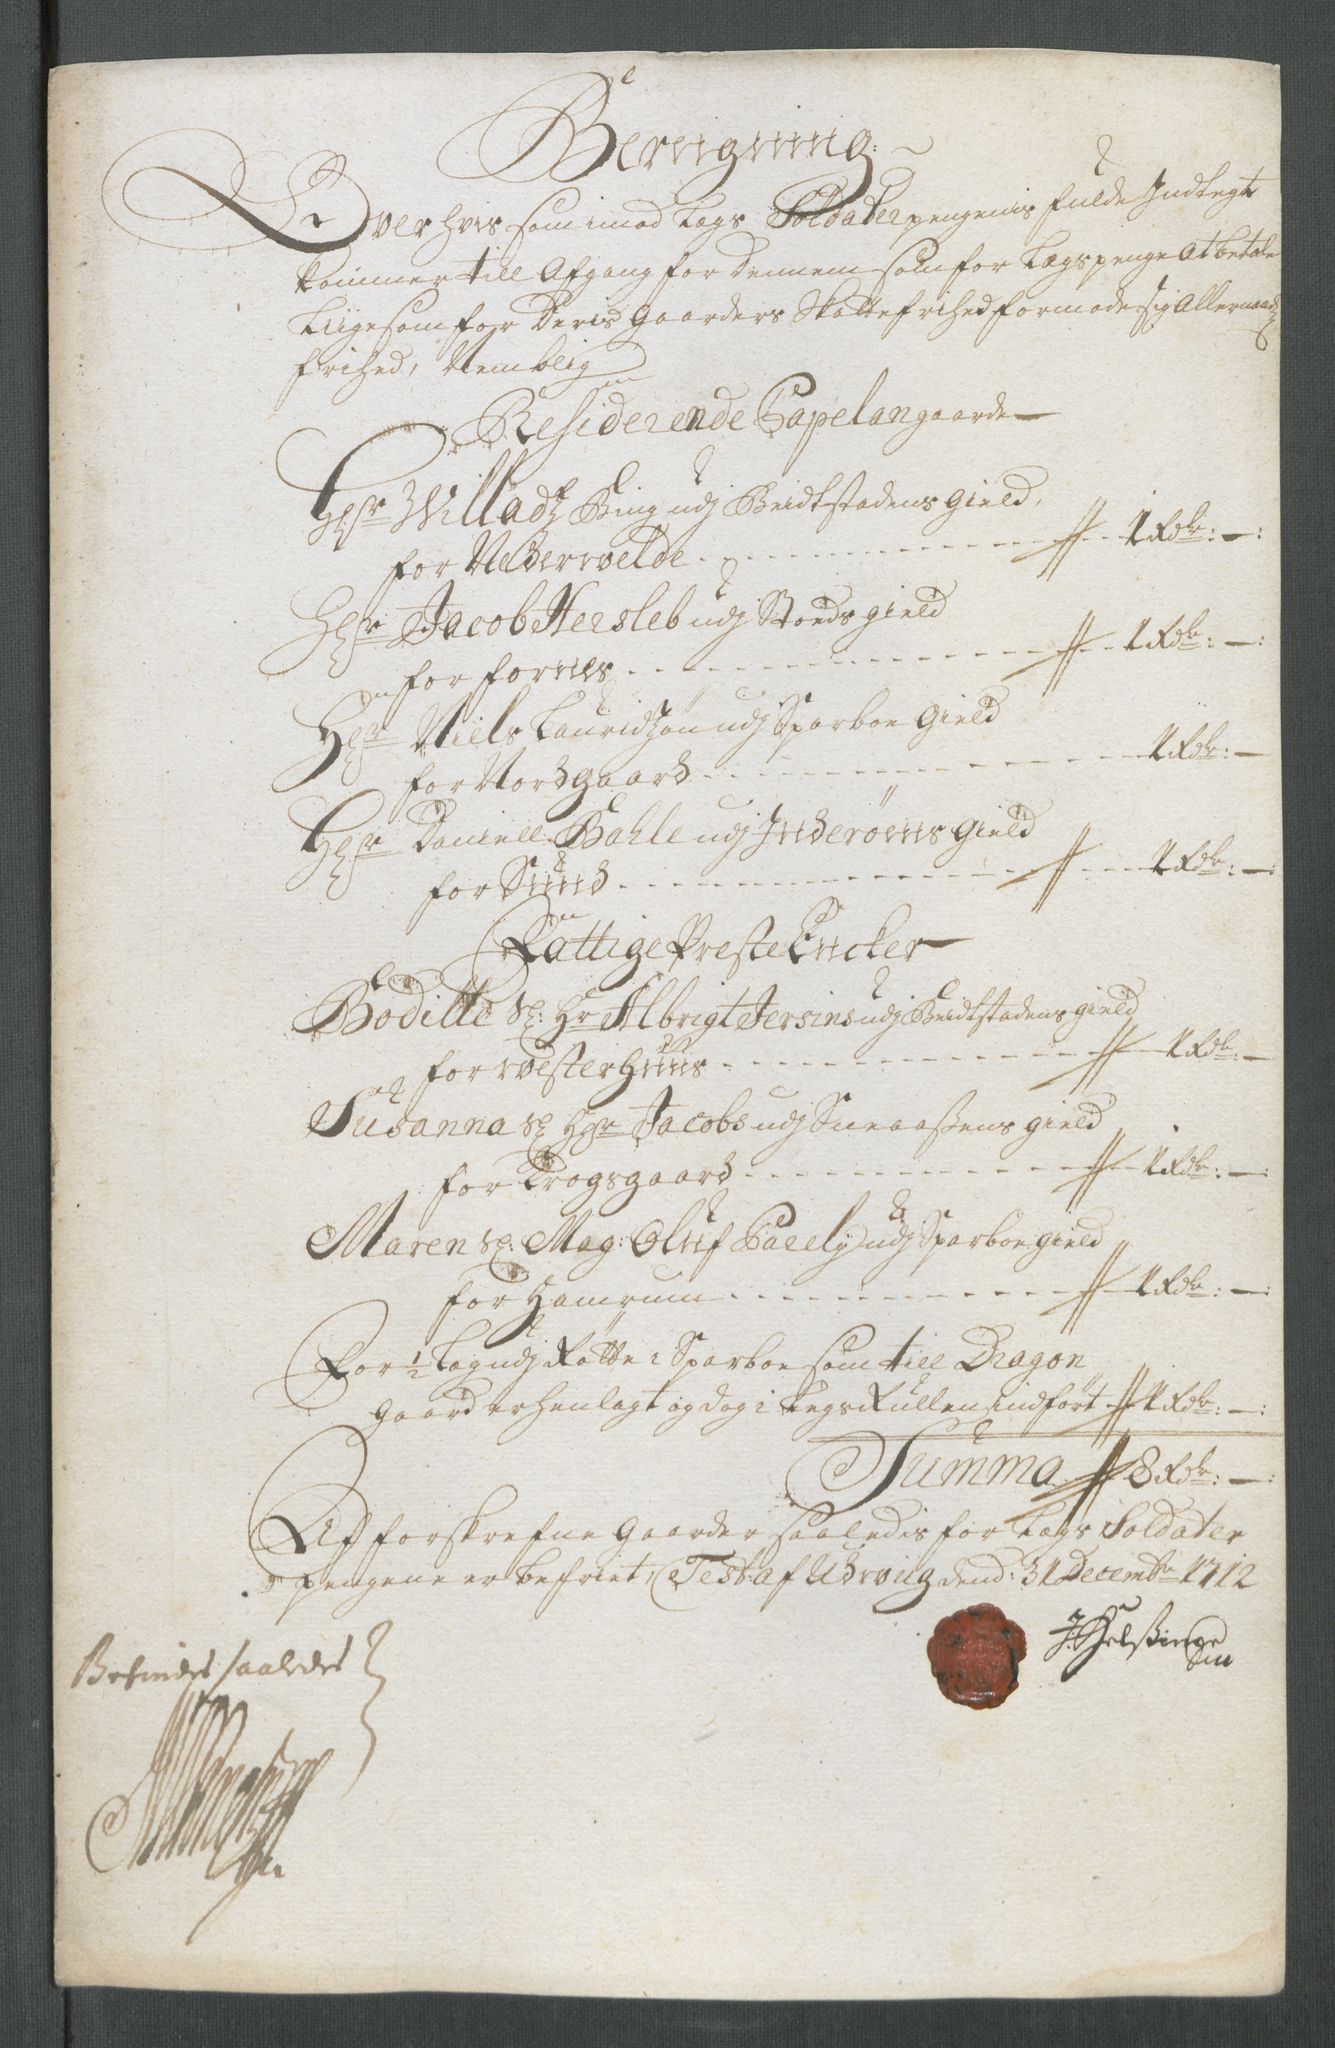 Beregning
Over hvis som imod Legs Soldater pengenis fulde Indtegt
kommer till Afgang for dennem som for Legspenge At betale
Liigesom for deris Gaarders Skattefrihed formode sig Allernaad
frihed, Nemblig
Residerende Capelangaarde
Hr Willadz Bing udj Beidtstadens gield
for Nedervelde 1 Rdr: —:
Hr Jacob Hersleb udj Stods gield
for fornes 1 Rdr: —:
Hr Niels Lauridzøn udj Sparboe Gield
for Nordgaard 1 Rdr: —
Hr Daniell Bahle udj Inderøens Gield
for Sund 1 Rdr: —:
Fattige Preste Encker
Bodille Sl: Hr Albrigt Jersins udj Beidtstadens gield
for westerhuus 1 Rdr: —
Susanna Sl Hr Jacobs udj Sneaaßens gield
for Krogsgaard 1 Rdr: —:
Maren Sl: Mag: Oluf udj Sparboe gield
for Hamrum 1 Rdr: —:
For 1/2 Leg udj i Sparboe som till Dragon
Gaard er henlagt og dog i Legs Rullen indført 1 Rdr: —:
Summa 8 Rdr: —:
At forskrefne Gaarder saaledis for Legs Soldater
pengene er befriet, Test: af Udvug dend: 31 Decembr 1712
Befindes saaledes